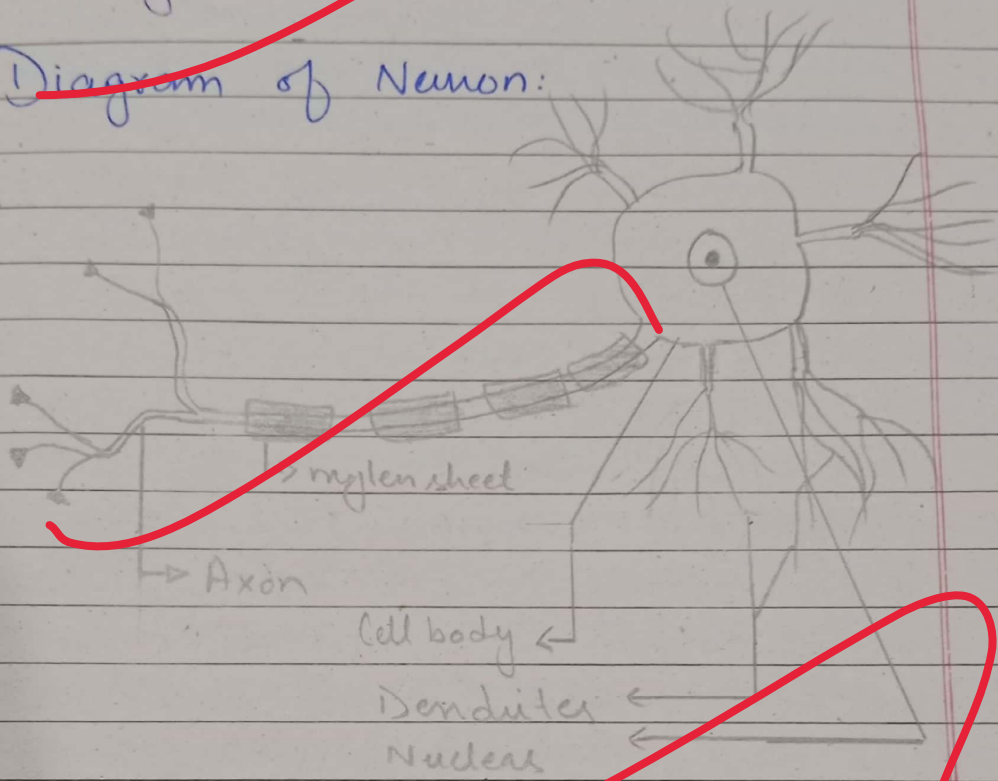 Diagram of Neuron:
mylen sheet
Axon
Cell body
Dendrites
Nucleus